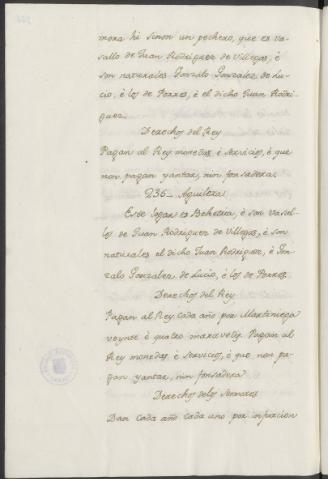 mora hi sinon un pechero, que es va-
sallo de Juan Rodriguez de Villegas, è
son naturales Gonzalo Gonzalez de Lu-
cio, è los de Porres, è el dicho Juan Rodri-
guez.
Derechos del Rey
Pagan al Rey monedas è servicios, è que
non pagan yantar, nin fonsadera.
236- Aguilera
Este logar es Behetria, è son vasal-
los de Juan Rodriguez de Villegas, è son
naturales el dicho Juan Rodriguez, è Gon-
zalo Gonzalez de Lucio, è los de Porres.
Derechos del Rey
Pagan al Rey cada año por Martiniega
veynte è quatro maravetis. Pagan al
Rey monedas è servicios, è que non pa-
gan yantar, nin fonsadera
Derechos delos Sennores
Dan cada año cada uno por infurcion